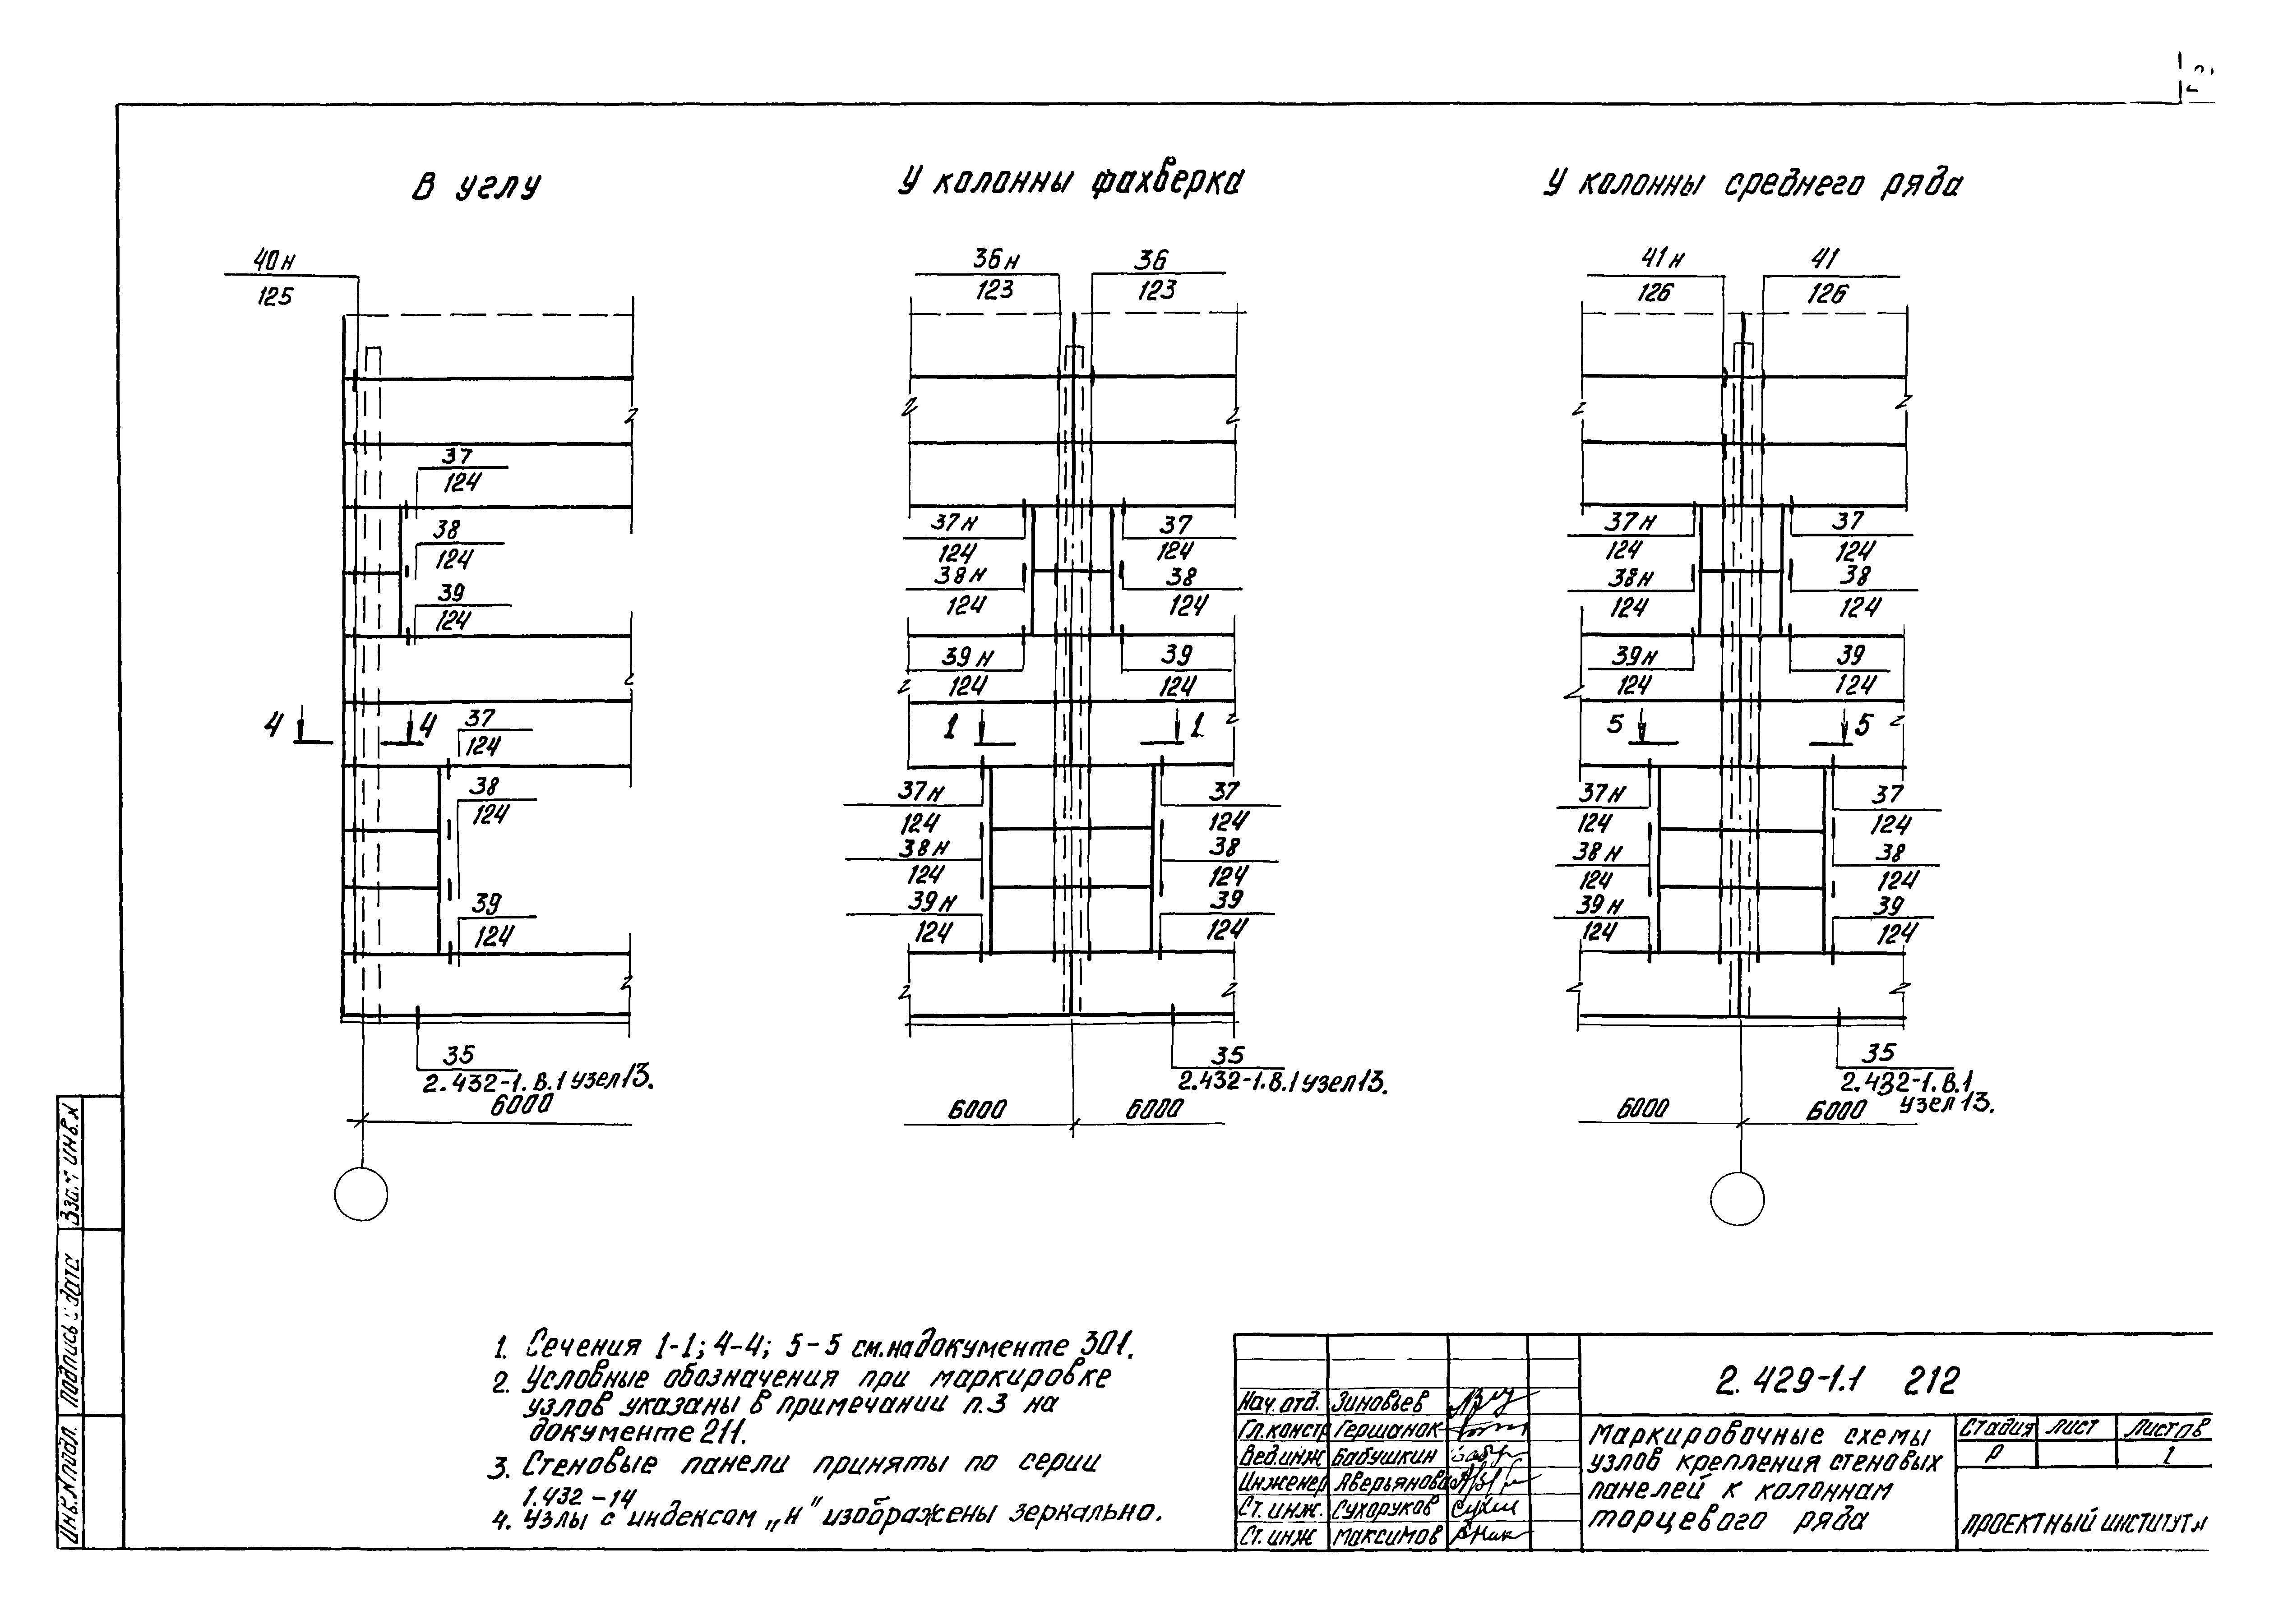 В углу
40н
125
37
124
38
124
39
124
4 4
37
124
38
124
39
124
35
2.432-1.В.1 узел 13.
6000
У колонны фахверка
36н
123
36
123
37н
124
37
124
38н
124
38
124
39н
124
39
124
1 1
37н
124
37
124
38н
124
38
124
39н
124
39
124
35
2.432-1.В.1 узел 13.
6000 6000
У колонны среднего ряда
41н
126
41
126
37н
124
37
124
38н
124
38
124
39н
124
39
124
5 5
37н
124
37
124
38н
124
38
124
39н
124
39
124
35
2.432-1.В.1
узел 13.
6000 6000
1. Сечения 1-1; 4-4; 5-5 см. на документе 301.
2. Условные обозначения при маркировке
узлов указаны в примечании п.3 на
документе 211.
3. Стеновые панели приняты по серии
1.432-14
4. Узлы с индексом „н" изображены зеркально.
Нач. отд. Зиновьев
Гл. констр Гершанок
Вед. инж Бабушкин
Инженер Аверьянова
Ст. инж. Сухоруков
Ст. инж Максимов
2.429-1.1 212
Маркировочные схемы
узлов крепления стеновых
панелей к колоннам
торцевого ряда
Стадия Лист Листов
Р 1
Проектный институт н
Инв. N подл. Подпись и дата Взам. инв. N